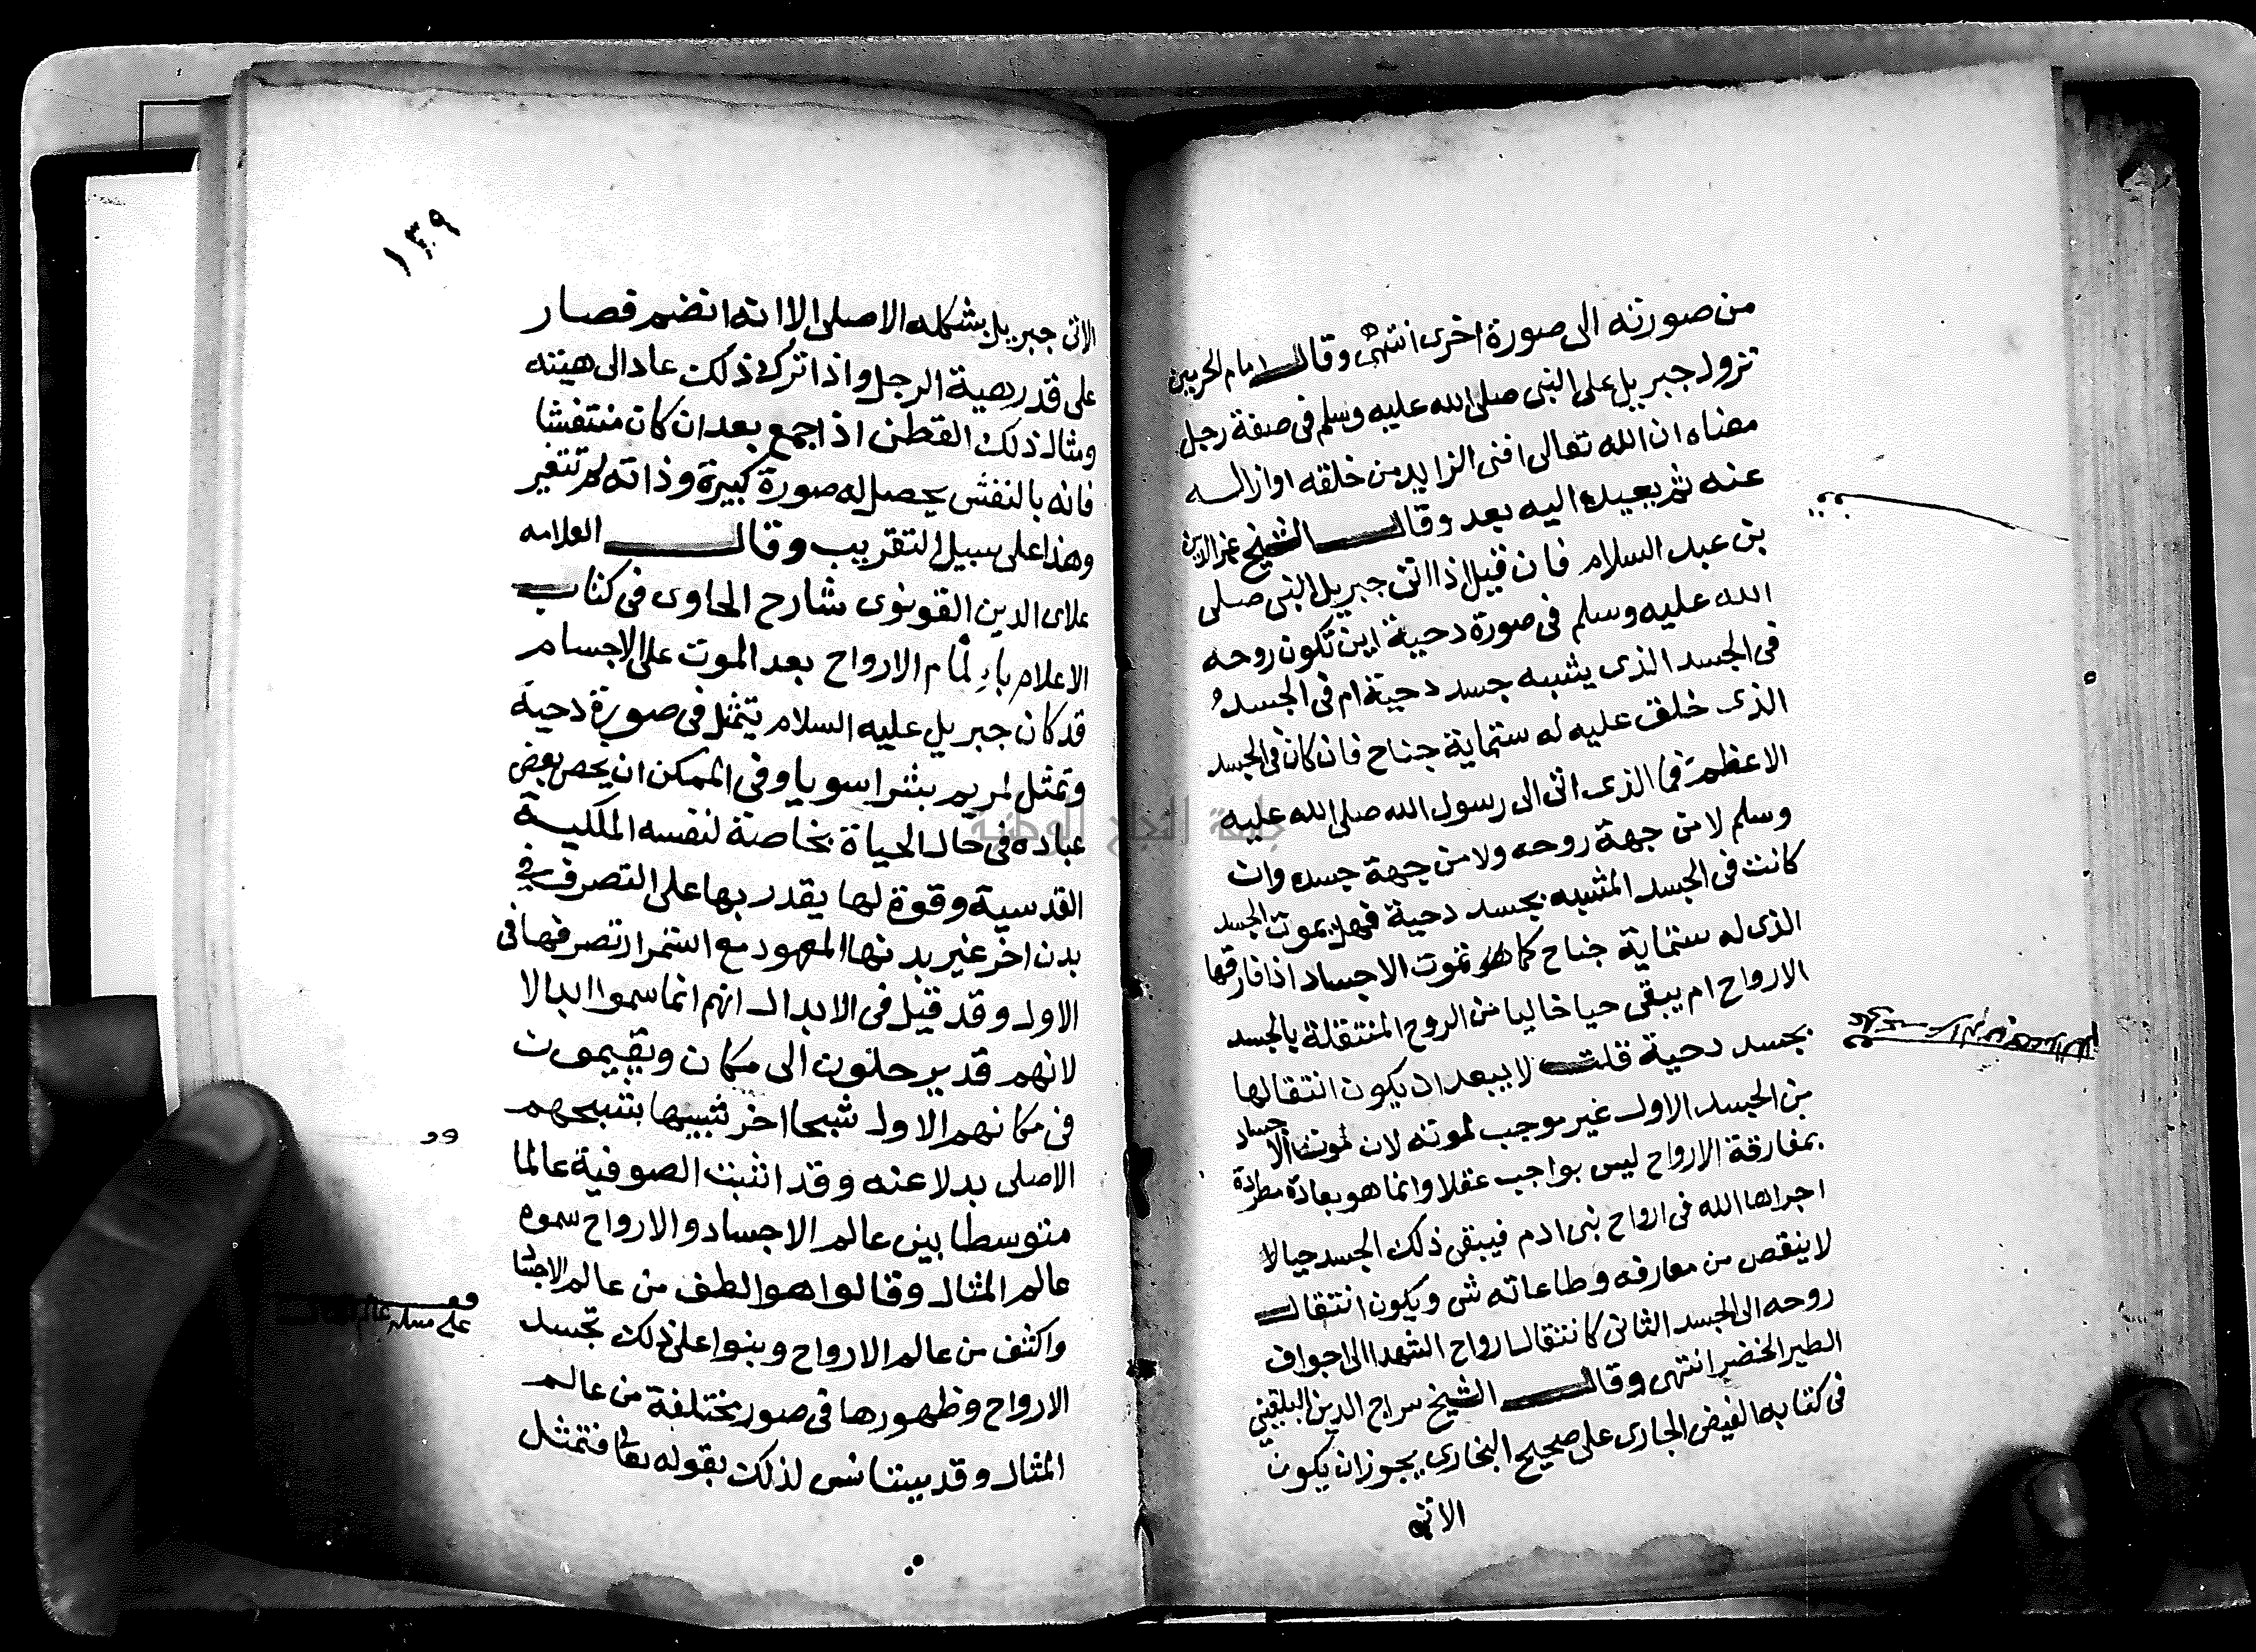 من صورته الى صورة اخرى انتهى وقال امام الحرمين
نزول جبريل على النبى صلى الله عليه وسلم فى صفة رجل
معناه ان الله تعالى افنى الزايد من خلقه او ازاله
عنه ثم يعيده اليه بعد وقال الشيخ عز الدين
بن عبد السلام فان قيل اذا اتى جبريل النبى صلى
الله عليه وسلم فى صورة دحية اين تكون روحه
فى الجسد الذى يشبه جسد دحية ام فى الجسد
الذى خلق عليه له ستماية جناح فان كان فى الجسد
الاعظم فما الذى اتى الى رسول الله صلى الله عليه
وسلم لا من جهة روحه ولا من جهة جسده وان
كانت فى الجسد المشبه بجسد دحية فهل يموت الجسد
الذى له ستماية جناح كما تموت الاجساد اذا فارقها
الارواح ام يبقى حيا خاليا من الروح المنتقلة بالجسد
بجسد دحية قلت لا يبعد ان يكون انتقالها
من الجسد الاول غير موجب لموته لان موت الاجساد
بمفارقة الارواح ليس بواجب عقلا وانما هو بعادة مطردة
اجراها الله فى ارواح بنى ادم فيبقى ذلك الجسد حيا لا
لا ينقص من معارفه وطاعاته شى ويكون انتقال
روحه الى الجسد الثانى كانتقال ارواح الشهدا الى اجواف
الطير الخضر انتهى وقال الشيخ سراج الدين البلقينى
فى كتابه الفيض الجارى على صحيح البخارى يجوز ان يكون
الاتى
١٣٩
الاتى جبريل بشكله الاصلى الا انه انضم فصار
على قدر هية الرجل واذا ترك ذلك عاد الى هيئته
ومثال ذلك القطن اذا جمع بعد ان كان منتفشا
فانه بالنفش يحصل له صورة كبيرة وذاته لم تتغير
وهذا على سبيل التقريب وقال العلامه
علاى الدين القونوى شارح الحاوى فى كتاب
الاعلام بالمام الارواح بعد الموت على الاجسام
قد كان جبريل عليه السلام يتمثل فى صورة دحية
وتمثل لمريم بشرا سويا وفى الممكن ان يخص بعض
عباده فى حال الحياة بخاصة لنفسه الملكية
القدسية وقوة لها يقدر بها على التصرف فى
بدن اخر غير بدنها المعهود مع استمرار تصرفها فى
الاول وقد قيل فى الابدال انهم انما سموا ابدالا
لانهم قد يرحلون الى مكان ويقيمون
فى مكانهم الاول شبحا اخر شبيها بشبحهم
الاصلى بدلا عنه وقد اثبت الصوفية عالما
متوسطا بين عالم الاجساد والارواح سموه
عالم المثال وقالوا هو الطف من عالم الاجساد
واكثف من عالم الارواح وبنوا على ذلك تجسد
الارواح وظهورها فى صور مختلفة من عالم
المثال وقد يستانس لذلك بقوله تعالى فتمثل
على مسئلة عالم
جامعة النجاح الوطنية